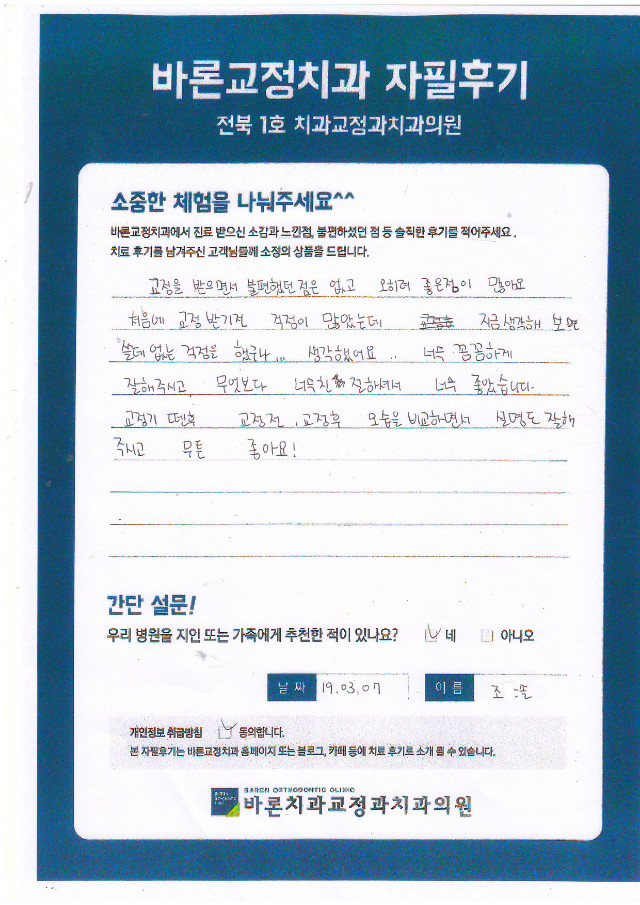 바론교정치과 자필후기
전북 1호 치과교정과치과의원
소중한 체험을 나눠주세요^^
바론교정치과에서 진료 받으신 소감과 느낀점, 불편하셨던 점 등 솔직한 후기를 적어주세요.
치료 후기를 남겨주신 고객님들께 소정의 상품을 드립니다.
교정을 받으면서 불편했던점은 없고 오히려 좋은점이 많아요
처음에 교정 받기전 걱정이 많았는데 지금생각해 보면
쓸데없는 걱정을 했구나... 생각했어요.. 너무 꼼꼼하게
잘해주시고, 무엇보다 너무친절하셔서 너무 좋았습니다.
교정기 뗀후 교정전, 교정후 모습을 비교하면서 설명도 잘해
주시고 무튼 좋아요!
간단 설문!
우리 병원을 지인 또는 가족에게 추천한 적이 있나요? 네 아니오
날 짜 19.03.07 이 름 조
개인정보 취급방침 동의합니다.
본 자필후기는 바론교정치과 홈페이지 또는 블로그, 카페 등에 치료 후기로 소개 될 수 있습니다.
BARON ORTHODONTIC CLINIC
바론치과교정과치과의원